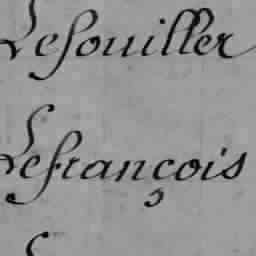 Lefouiller
Lefrançois